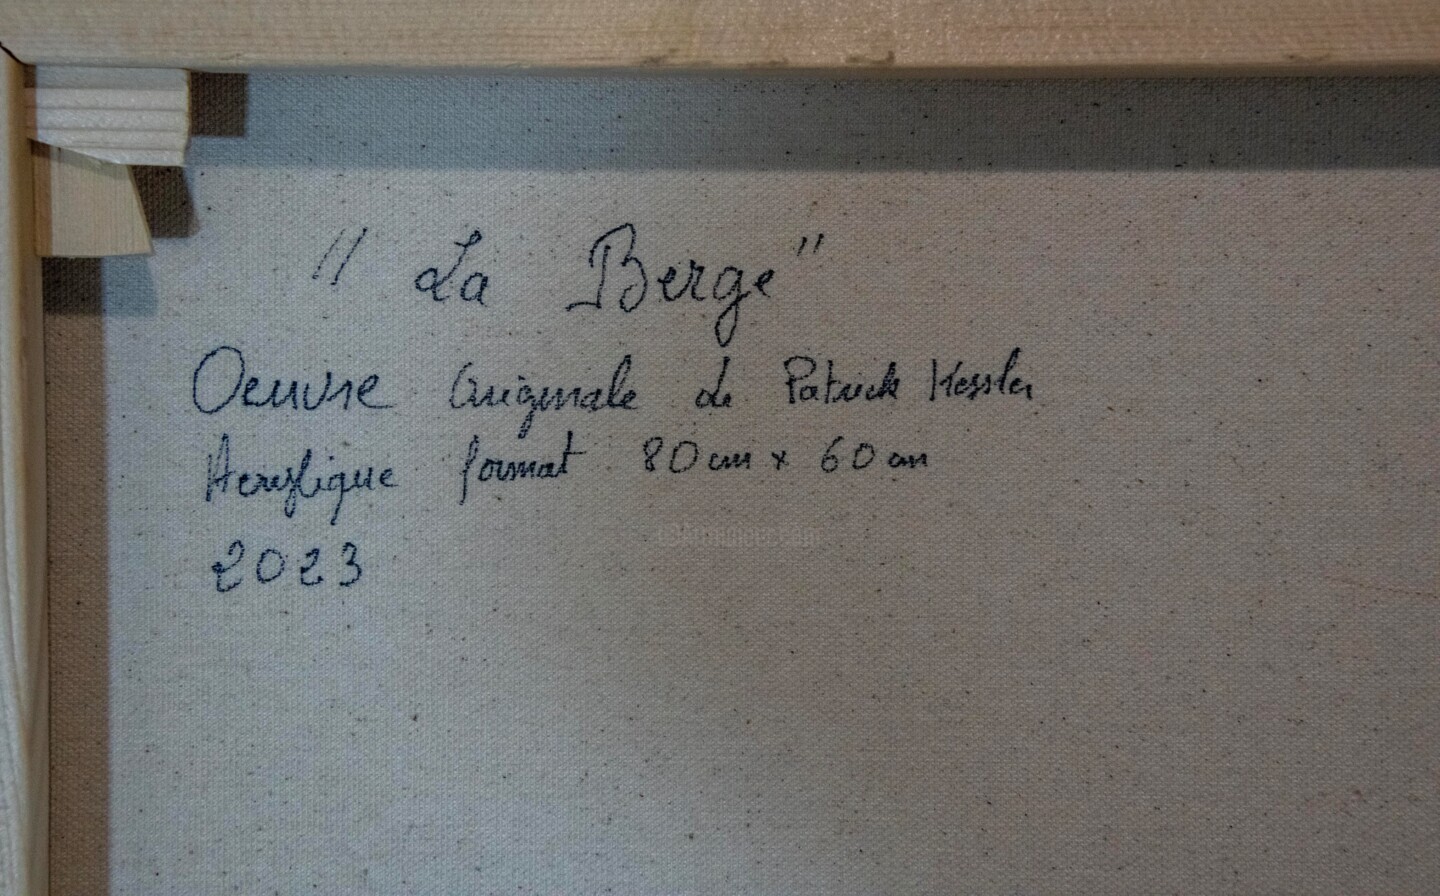 " La Berge"
Oeuvre Originale de Patrick Kessler
Acrylique format 80cm x 60cm
2023